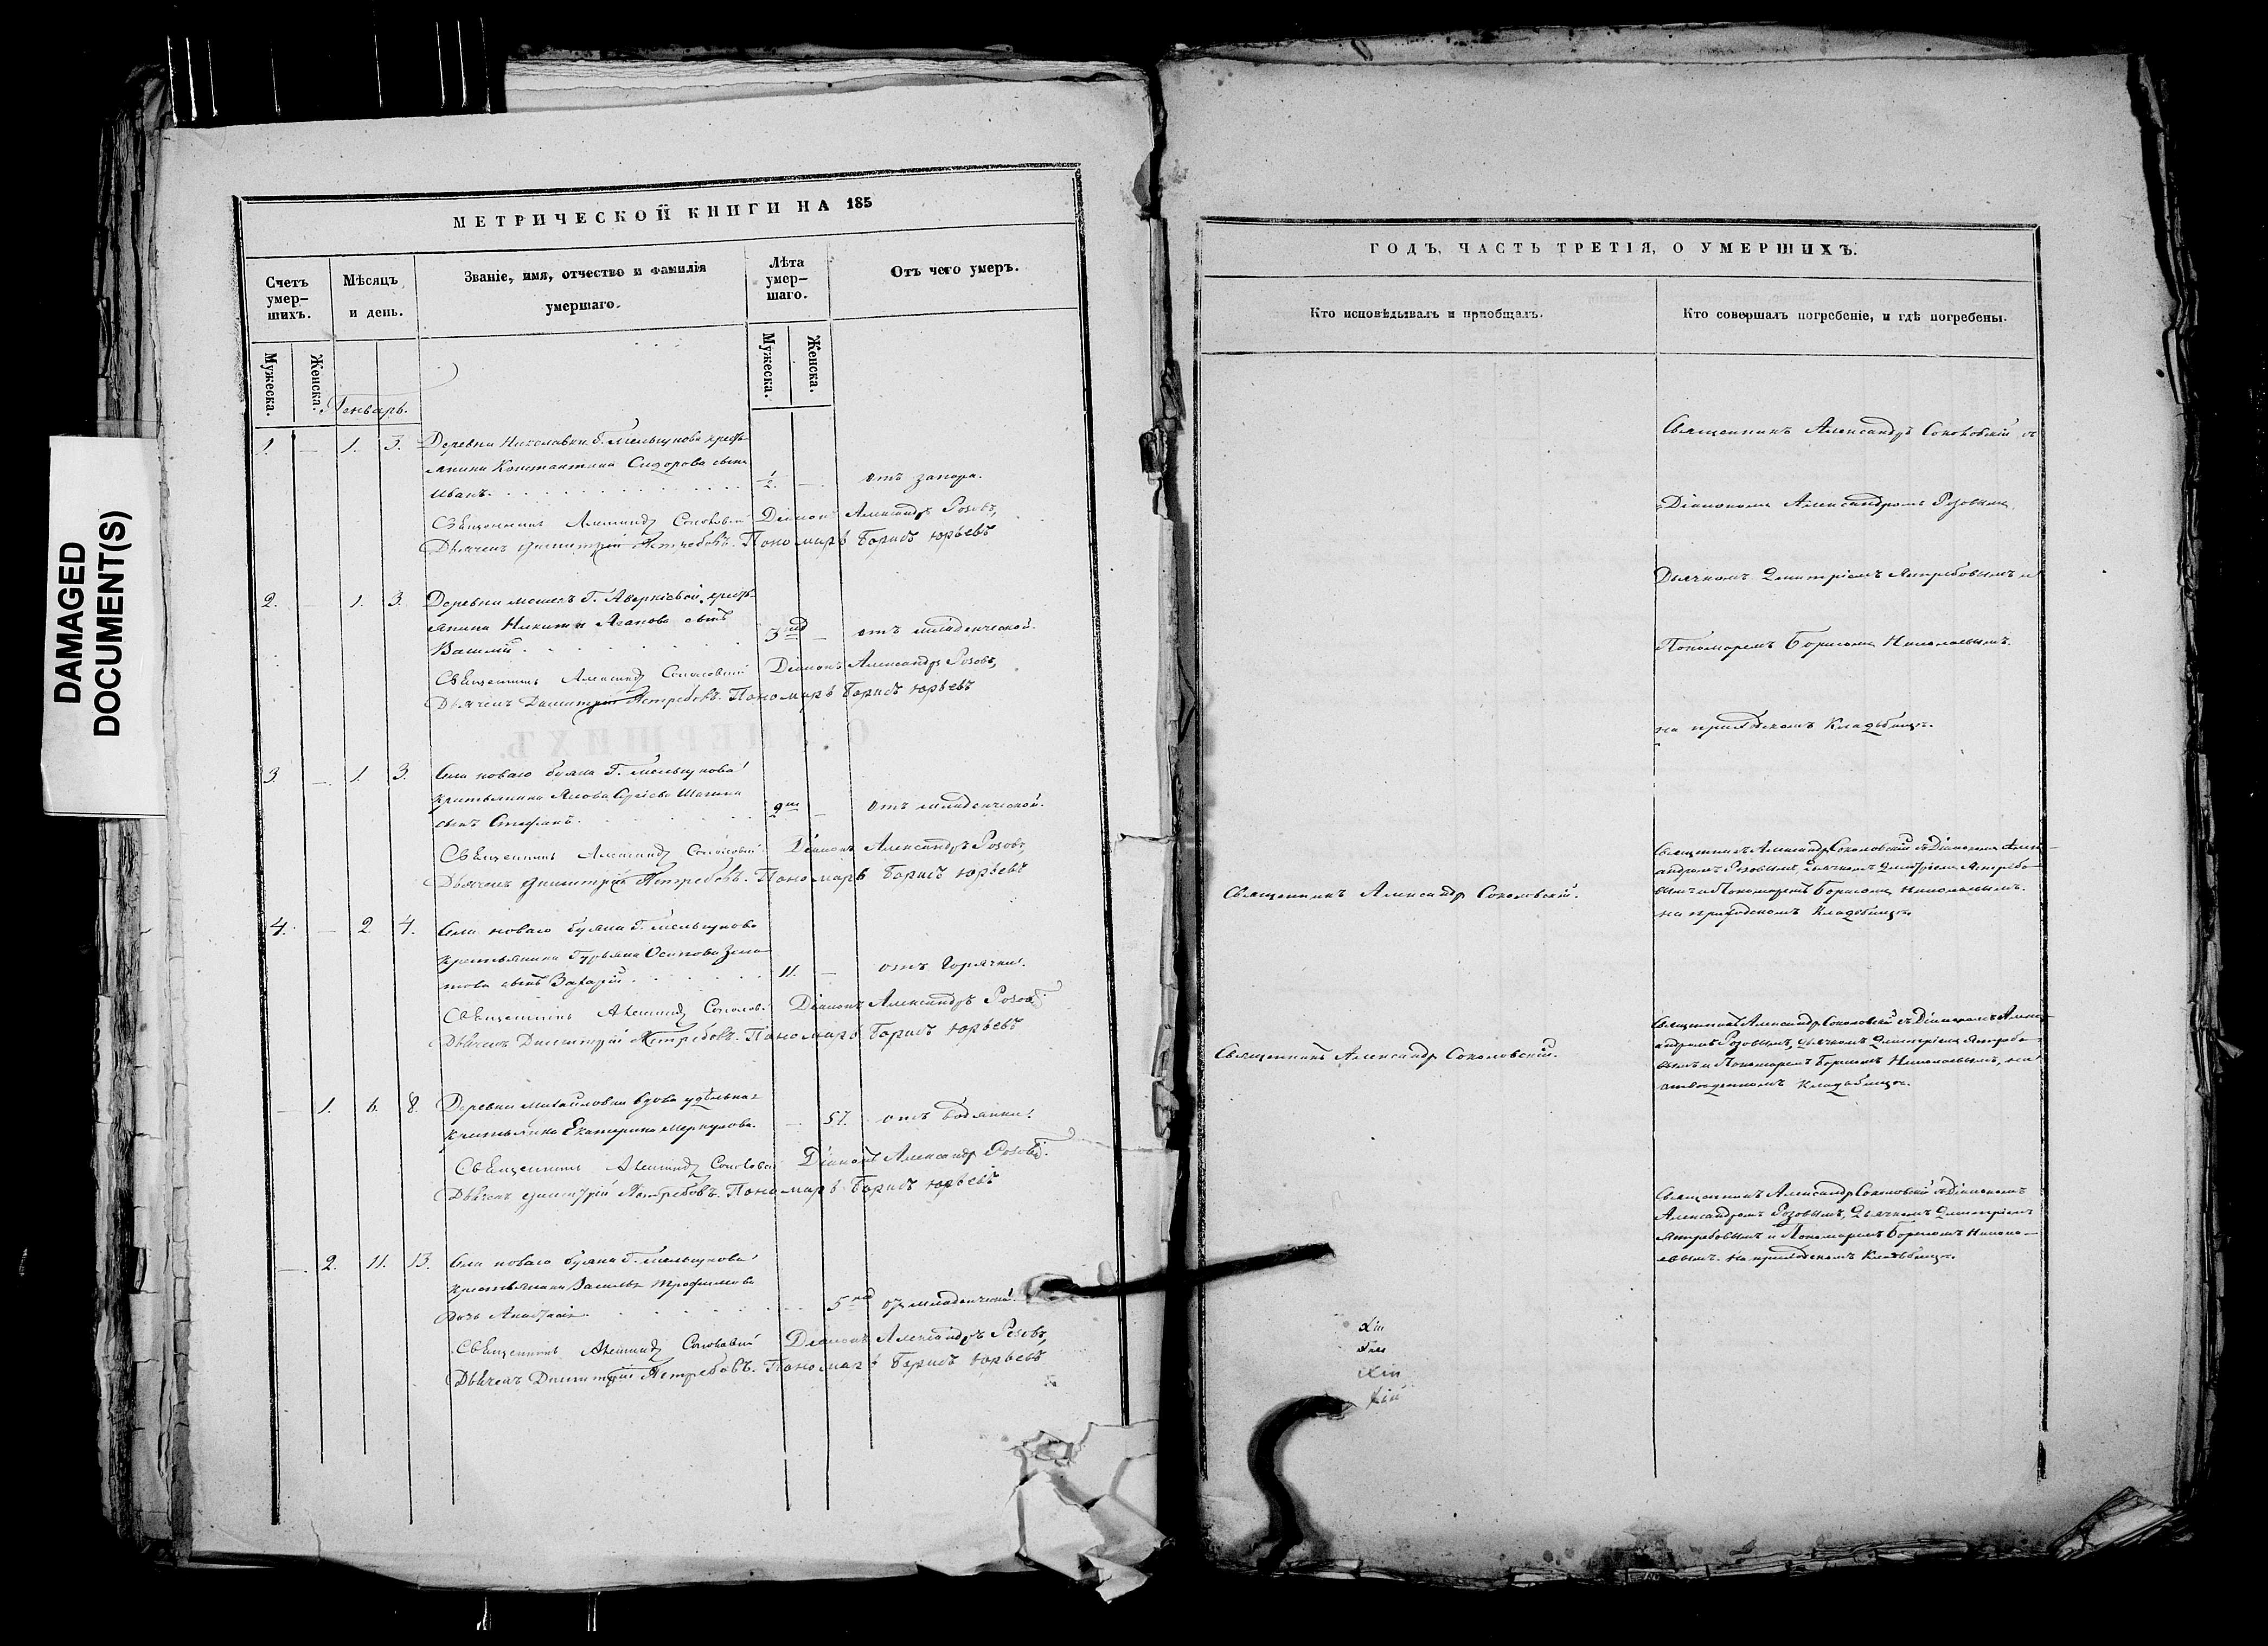 DAMAGED
DOCUMENT(S)
МЕТРИЧЕСКОЙ КНИГИ НА 185
Счетъ умер-
шихъ.
Мѣсяцъ
и день.
Званіе, имя, отчество и фамилія
умершаго.
Лѣта
умер-
шаго.
Отъ чего умеръ.
Мужеска.
Женска.
Мужеска.
Женска.
Генварь.
1. — 1. 3. Деревни Николаевки Г. Мельгунова кресть-
янина Константина Сидорова сынъ
Иванъ. 1/2. — отъ запора.
Священникъ Александръ Соколовскій Діаконъ Александръ Розовъ,
Дьячекъ Димитрій Ястребовъ. Пономарь Борисъ Юрьевъ
2. 1. 3. Деревни Г. кресть-
янина Никиты сынъ
Василій. 3 — отъ младенческой.
Священникъ Александръ Соколовскій Діаконъ Александръ Розовъ,
Дьячекъ Димитрій Ястребовъ. Пономарь Борисъ Юрьевъ
3. — 1. 3. Села новаго буяна Г. Мельгунова
крестьянина сынъ Стефанъ. 2 — отъ младенческой.
Священникъ Александръ Соколовскій Діаконъ Александръ Розовъ,
Дьячекъ Димитрій Ястребовъ. Пономарь Борисъ Юрьевъ
4. — 2. 4. Села новаго буяна Г. Мельгунова
крестьянина Гурьяна Осипова
сынъ Захарій. 11. — отъ горячки.
Священникъ Александръ Соколов. Діаконъ Александръ Розовъ
Дьячекъ Димитрій Ястребовъ. Пономарь Борисъ Юрьевъ
— 1. 6. 8. Деревни Михайловки вдова удѣльная
крестьянка Екатерина Меркулова. — 57. отъ водянки.
Священникъ Александръ Соколовскій Діаконъ Александръ Розовъ.
Дьячекъ Димитрій Ястребовъ. Пономарь Борисъ Юрьевъ
— 2. 11. 13. Села новаго буяна Г. Мельгунова
крестьянина Василья Трофимова
дочь Анастасія 5 отъ младенческой.
Священникъ Александръ Соколовскій Діаконъ Александръ Розовъ,
Дьячекъ Димитрій Ястребовъ. Пономарь Борисъ Юрьевъ
ГОДЪ, ЧАСТЬ ТРЕТІЯ, О УМЕРШИХЪ.
Кто исповѣдывалъ и пріобщалъ.
Кто совершалъ погребеніе, и гдѣ погребены.
Священникъ Александръ Соколовскій съ
Діакономъ Александромъ Розовымъ,
Дьячкомъ Димитріемъ Ястребовымъ и
Пономаремъ Борисомъ Николаевымъ.
на приходскомъ кладбищѣ.
Священникъ Александръ Соколовскій съ Діакономъ Алек-
андромъ Розовымъ, Дьячкомъ Димитріемъ Ястребо-
вымъ и Пономаремъ Борисомъ Николаевымъ.
на приходскомъ кладбищѣ.
Священникъ Александръ Соколовскій.
Священникъ Александръ Соколовскій съ Діакономъ Алек-
андромъ Розовымъ, Дьячкомъ Димитріемъ Ястребо-
вымъ и Пономаремъ Борисомъ Николаевымъ, на
отведенномъ кладбищѣ.
Священникъ Александръ Соколовскій.
Священникъ Александръ Соколовскій съ Діакономъ
Александромъ Розовымъ, Дьячкомъ Димитріемъ
Ястребовымъ и Пономаремъ Борисомъ Никола-
евымъ. на приходскомъ кладбищѣ.